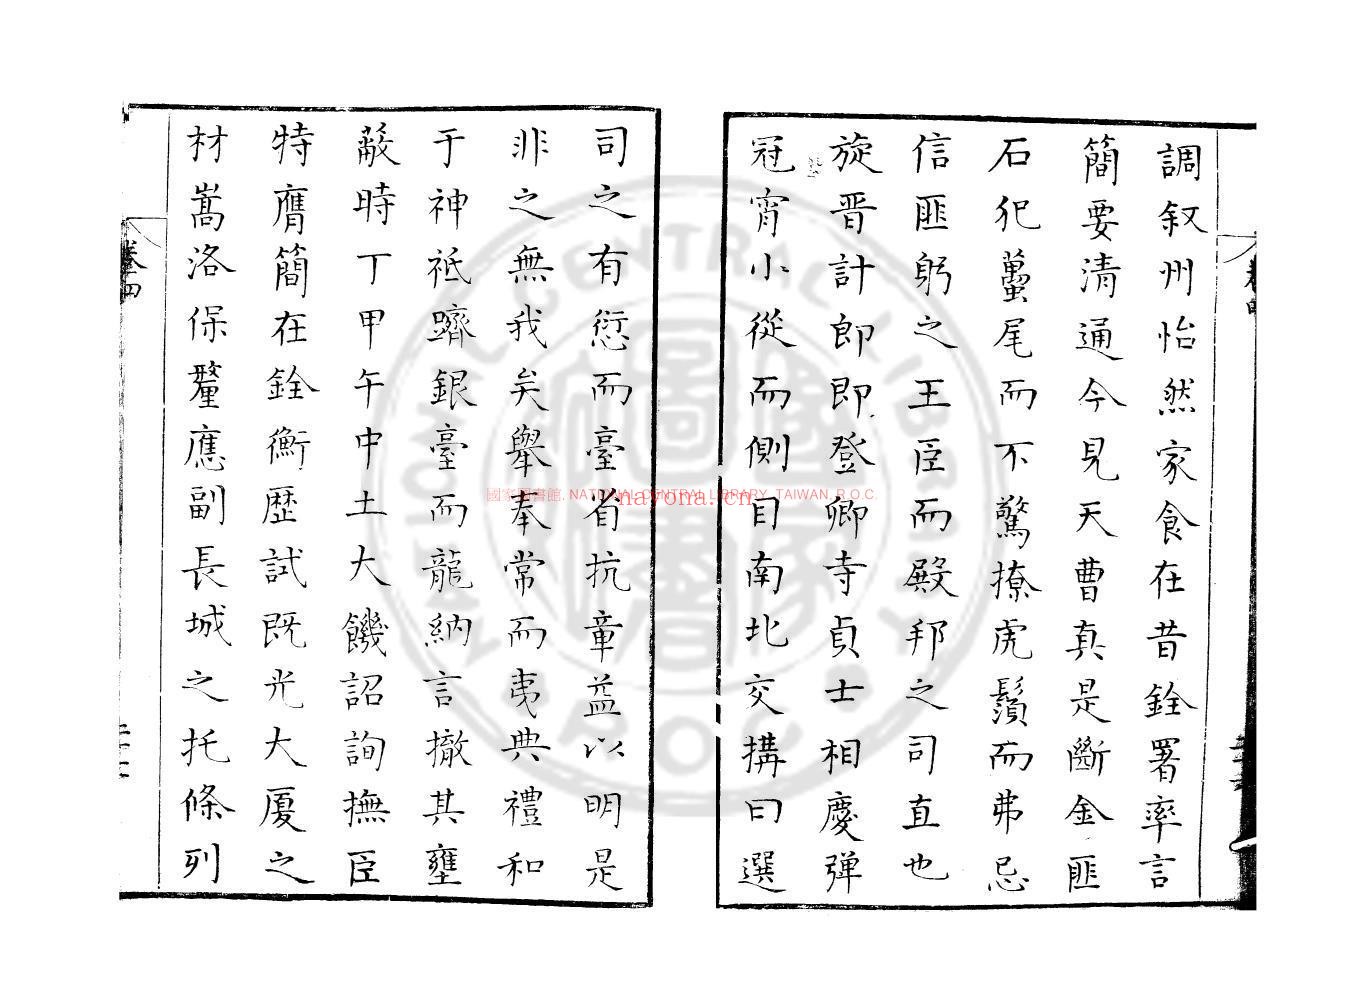 調叙州怡然家食在昔銓署率言
簡要清通今見天曹真是斷金匪
石犯蠆尾而不驚撩虎鬚而弗忌
信匪躬之王臣而殿邦之司直也
旋晋計郎即登卿寺貞士相慶弹
冠宵小從而側目南北交搆曰選
司之有愆而臺省抗章益以明是
非之無我矣舉奉常而夷典禮和
于神祗躋銀臺而龍納言撤其壅
蔽時丁甲午中土大饑詔詢撫臣
特膺簡在銓衡歴試既光大厦之
材嵩洛保釐應副長城之托條列
卷四
國家圖書館, NATIONAL CENTRAL LIBRARY, TAIWAN, R.O.C
nayona.cn
NATIONAL CENTRAL LIBRARY
R.O.C